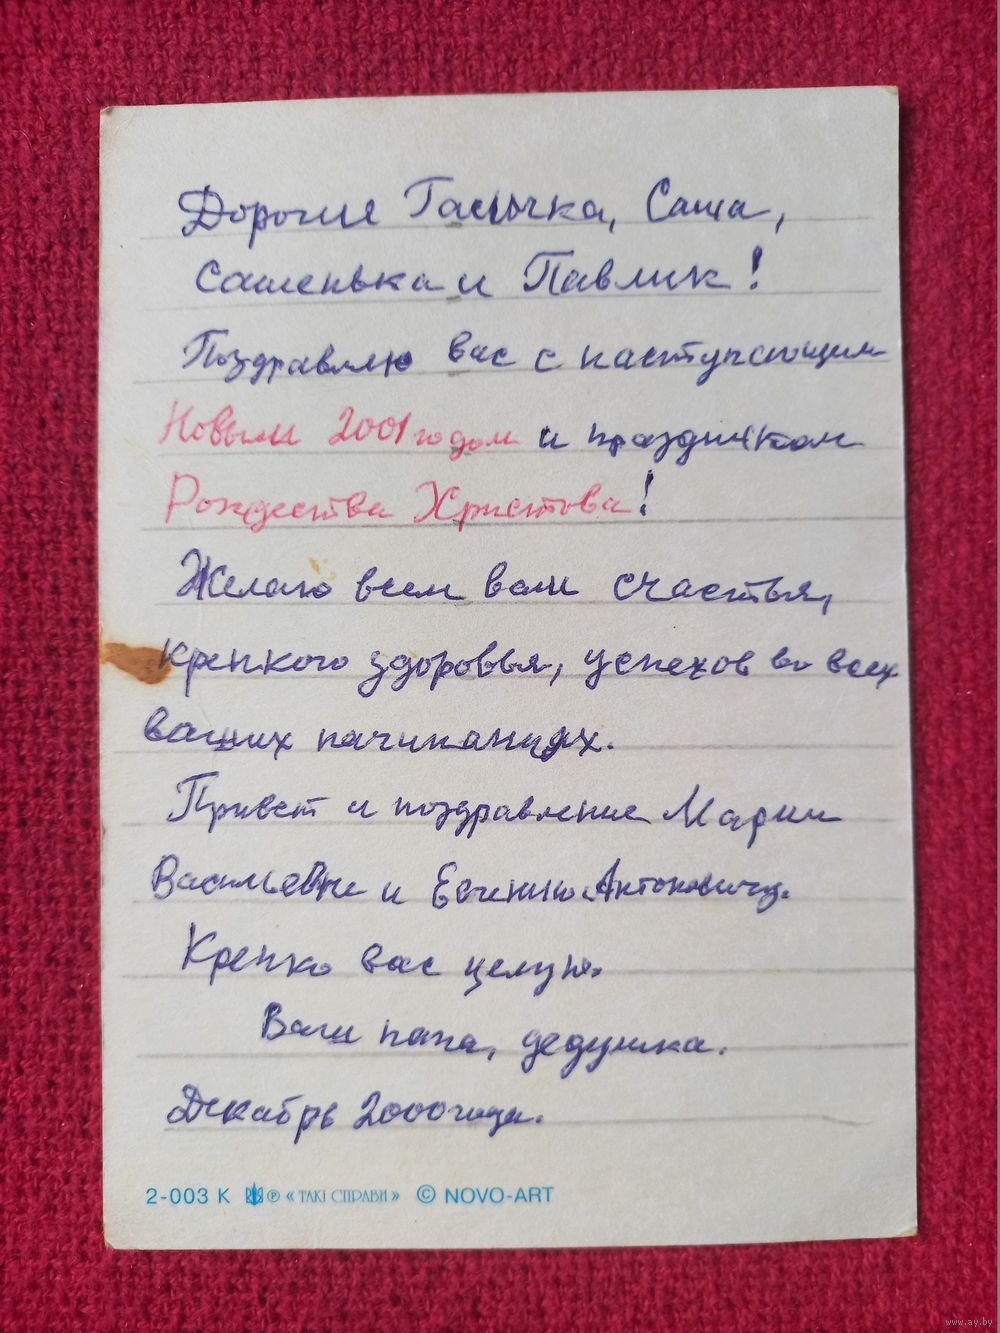 Дорогие Галочка, Саша,
Сашенька и Павлик!
Поздравляю вас с наступающим
Новым 2001 годом и праздником
Рождества Христова!
Желаю всем вам счастья,
крепкого здоровья, успехов во всех
ваших начинаниях.
Привет и поздравление Марии
Васильевне и Евгению Антоновичу.
Крепко вас целую.
Ваш папа, дедушка.
Декабрь 2000 года.
2-003 К ℗ «ТАКІ СПРАВИ» © NOVO-ART
www.ay.by